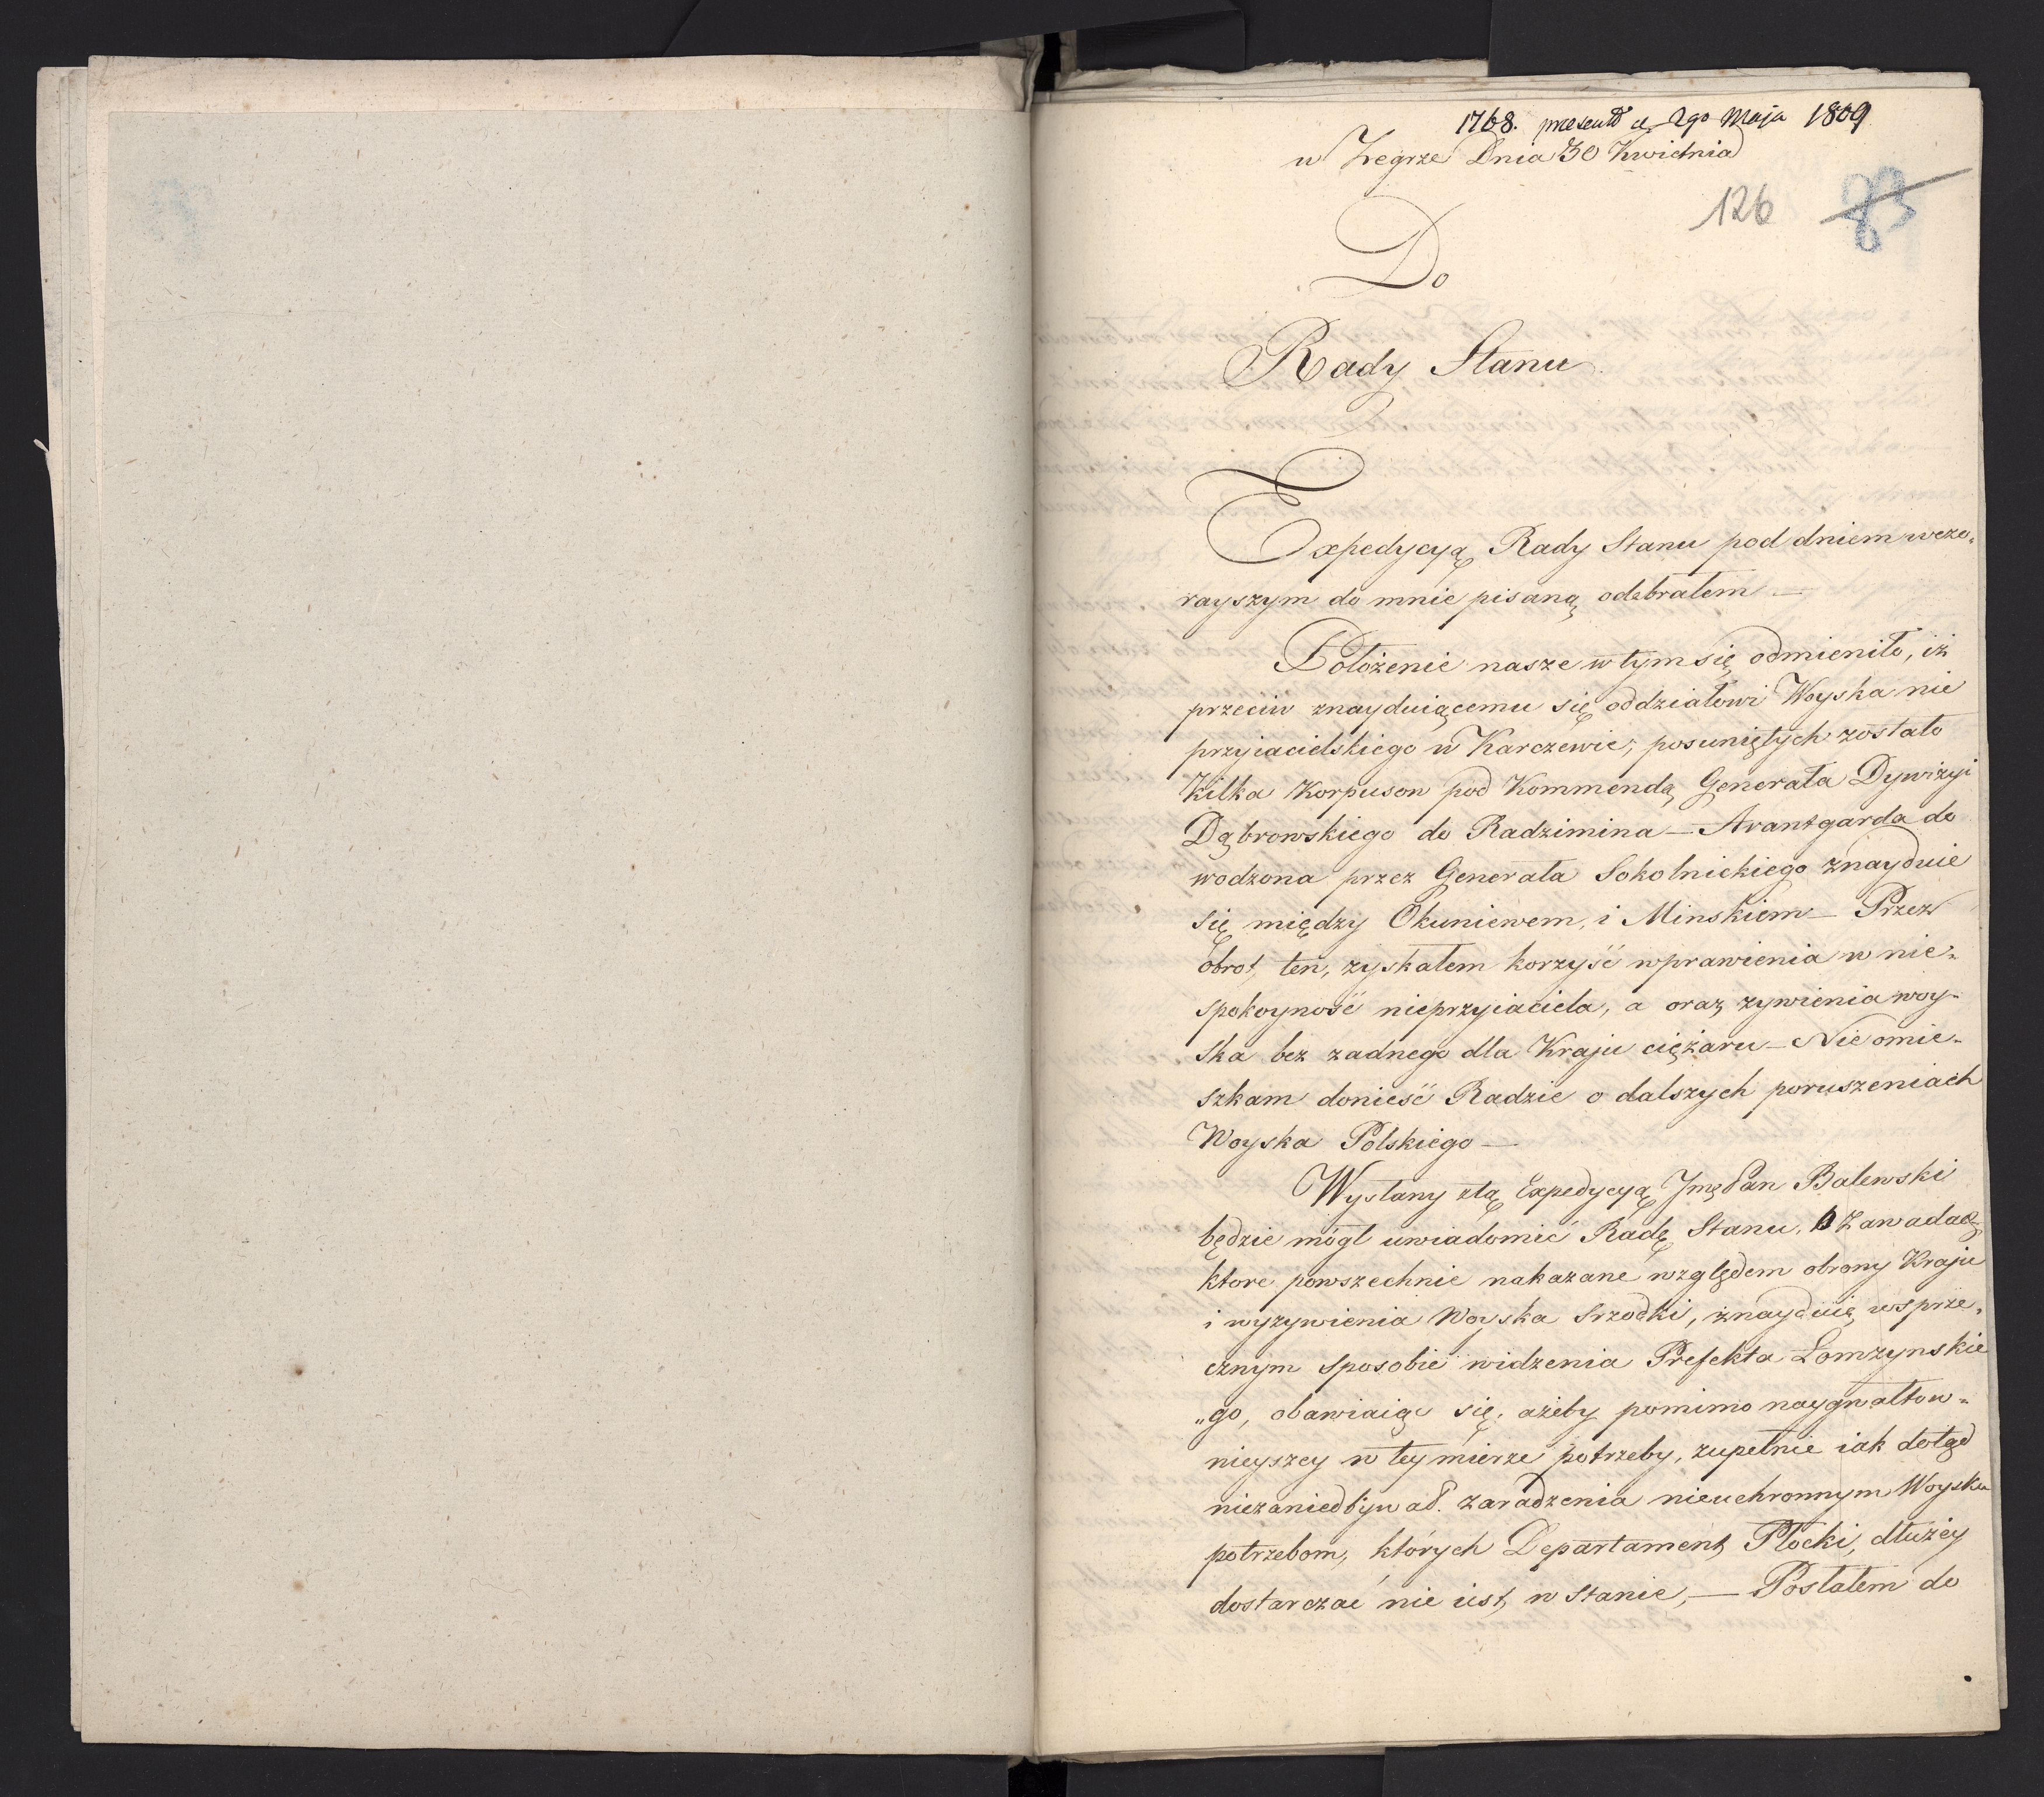 1768. praesentd d. 2go Maja 1809
w Zegrze Dnia 30 Kwietnia
126 83
Do
Rady Stanu
Expedycyą Rady Stanu pod dniem wczo„
rayszym do mnie pisaną odebrałem —
Położenie nasze w tym się odmieniło, iż
przeciw znayduiącemu się oddziałowi Woyska nie
przyiacielskiego w Karczewie, posuniętych zostało
Kilka Korpusow pod Kommendą Generała Dywizyi
Dąbrowskiego do Radzimina — Avantgarda do
wodzona przez Generała Sokolnickiego znayduie
się między Okuniewem, i Minskiem — Przez
obrot ten, zyskałem korzyść wprawienia w nie„
spokoyność nieprzyiaciela, a oraz zywienia woy„
ska bez zadnego dla Kraju ciężaru — Nie omie„
szkam donieść Radzie o dalszych poruszeniach
Woyska Polskiego —
Wysłany z tą Expedycyą Jmć Pan Balewski
będzie mógł uwiadomić Radę Stanu, o Zawadach
ktore powszechnie nakazane względem obrony Kraju
i wyzywienia Woyska srzodki, znayduią w sprze„
cznym sposobie widzenia Prefekta Łomzynskie
„go, obawiaiąc się, ażeby pomimo naygwałtow„
nieyszey w tey mierze potrzeby, zupełnie iak dotąd
niezaniedbywał zaradzenia nieuchronnym Woyska
potrzebom, których Departament Płocki, dłużey
dostarczać nie iest w stanie, — Posłałem do